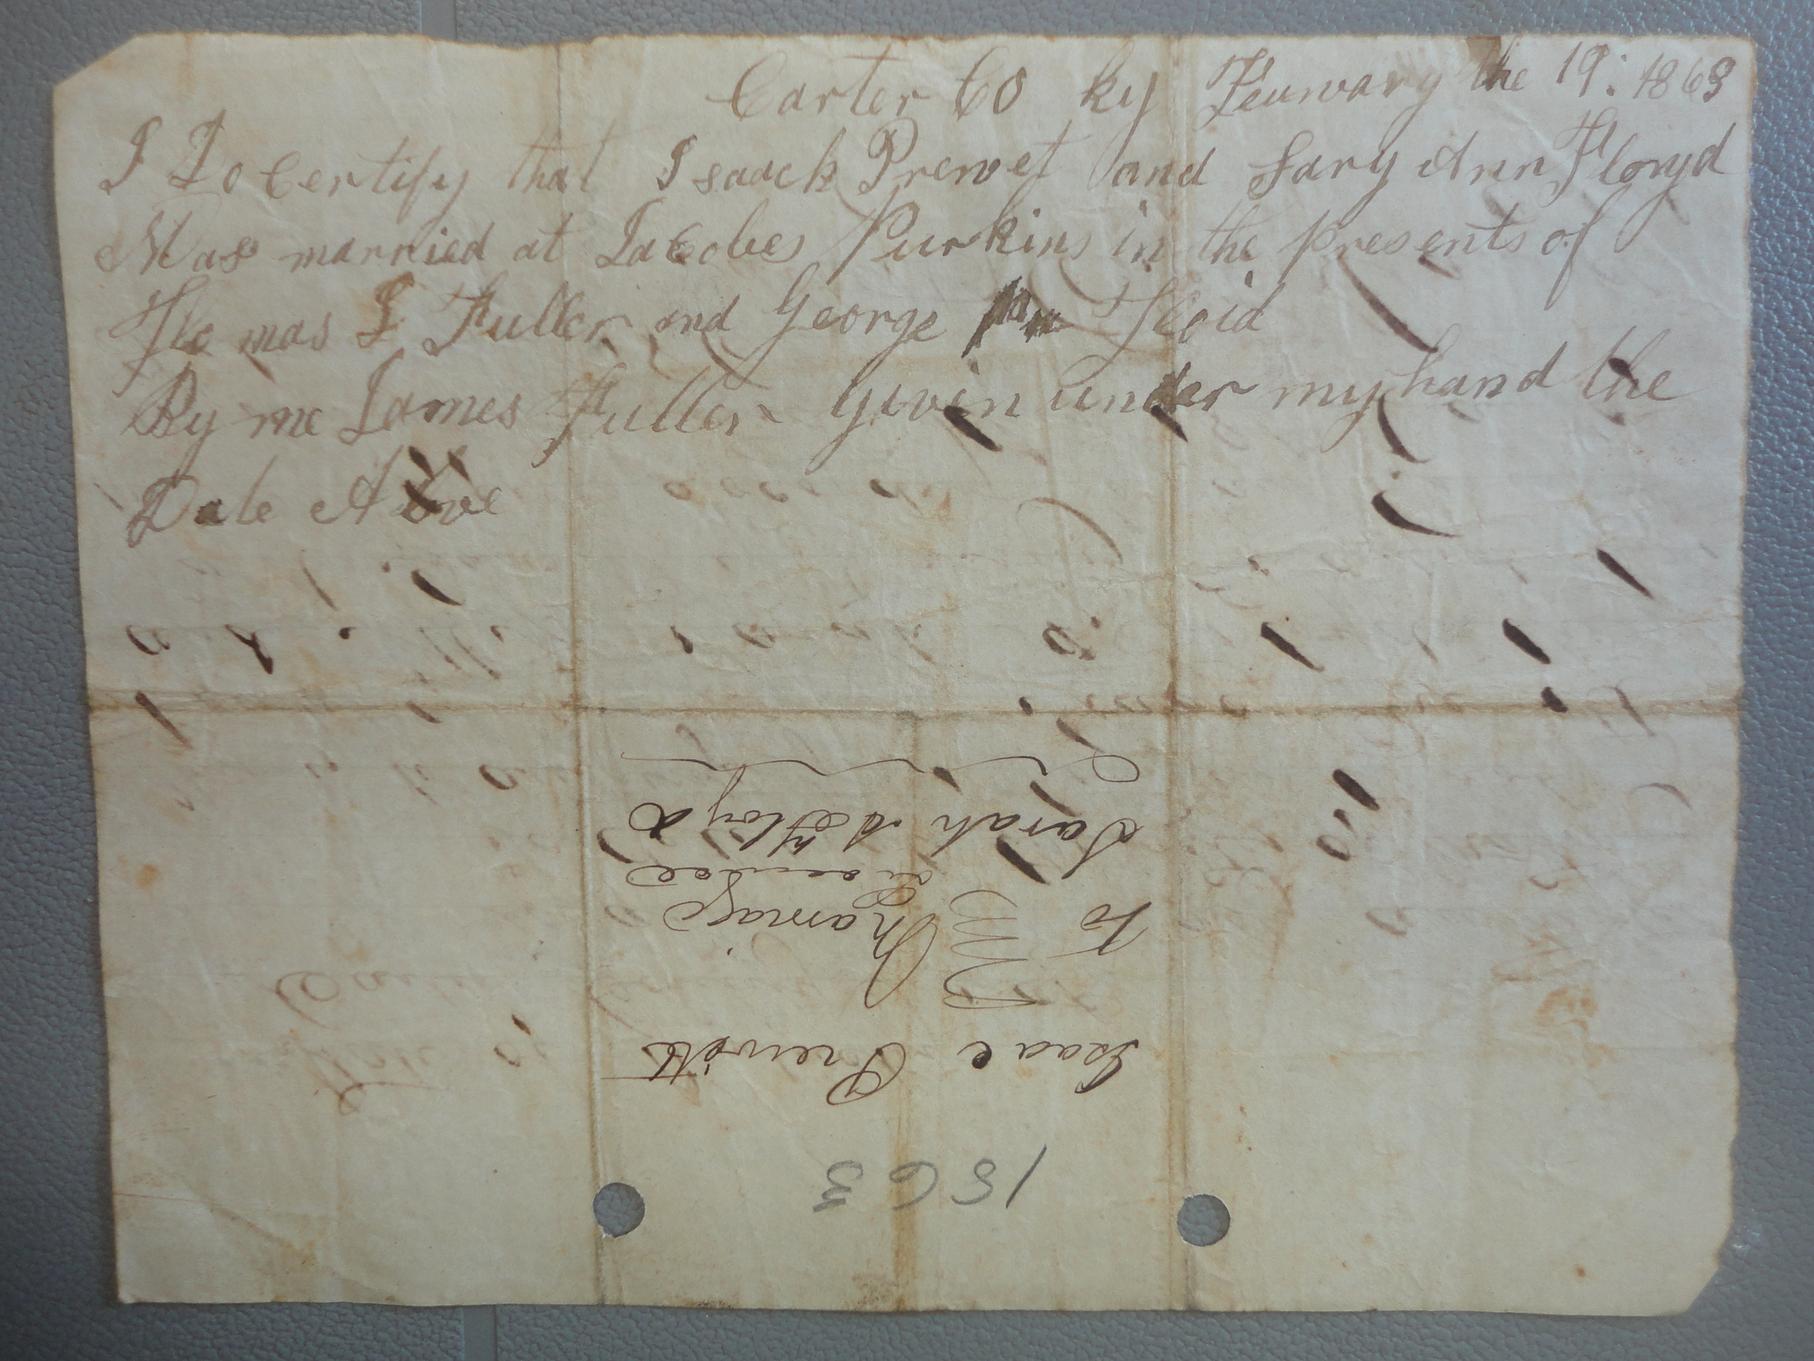 Carter Co Ky Feurwary the 19: 1863
I Do Certify that Isaack Prewet and Sary Ann Floyd
Was married at Jacobes Purkins in the presents of
Thomas J Fuller and George Floid
By me James Fuller Given under my hand the
Date Above
Isaac Prewitt
To Marriage
Licence
Sarah A Floyd
1863